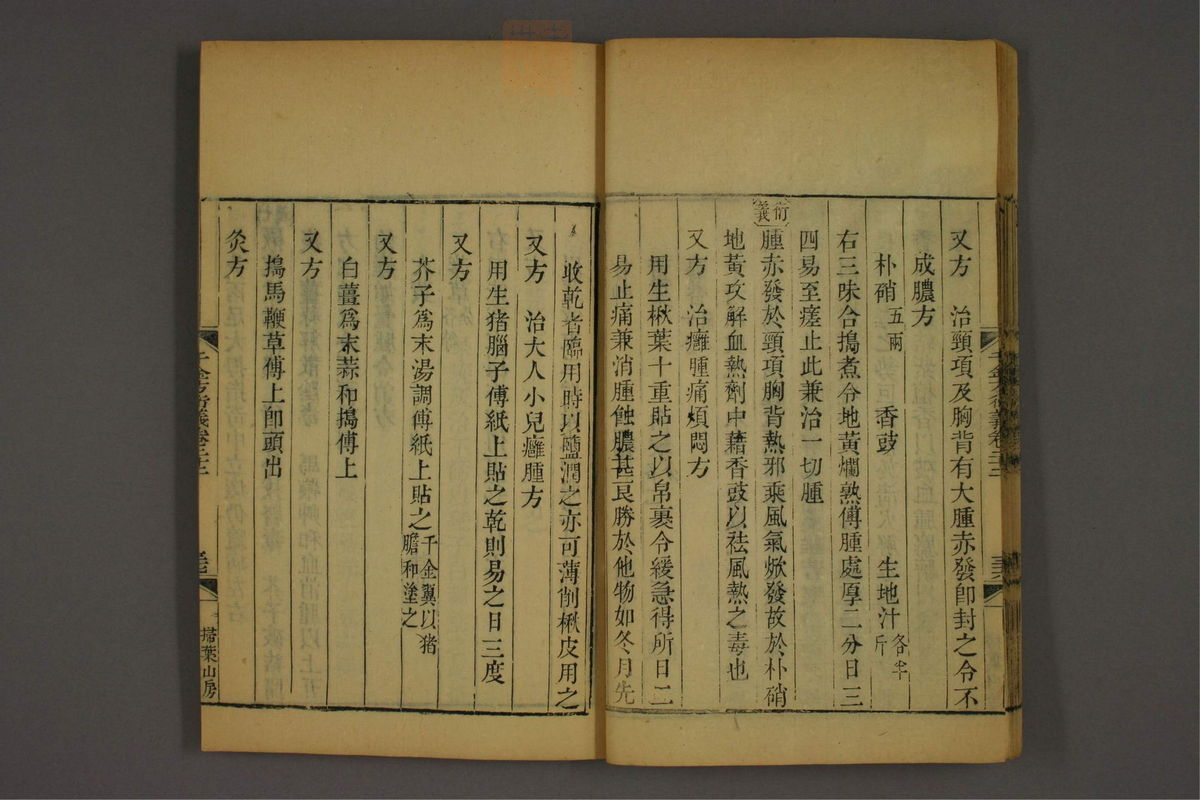 又方　治頸項及胸背有大腫赤發卽封之令不
成膿方
朴硝五兩　香豉　生地汁各半斤
右三味合搗煮令地黃爛熟傅腫處厚二分日三
四易至瘥止此兼治一切腫
衍義
腫赤發於頸項胸背熱邪乘風氣焮發故於朴硝
地黃攻解血熱劑中藉香豉以祛風熱之毒也
又方　治癰腫痛煩悶方
用生楸葉十重貼之以帛裹令緩急得所日二
易止痛兼消腫蝕膿甚良勝於他物如冬月先
收乾者臨用時以鹽潤之亦可薄削楸皮用之
又方　治大人小兒癰腫方
用生猪腦子傅紙上貼之乾則易之日三度
又方
芥子爲末湯調傅紙上貼之千金翼以猪膽和塗之
又方
白薑爲末蒜和搗傅上
又方
搗馬鞭草傅上卽頭出
灸方
千金方衍義卷二十二
掃葉山房